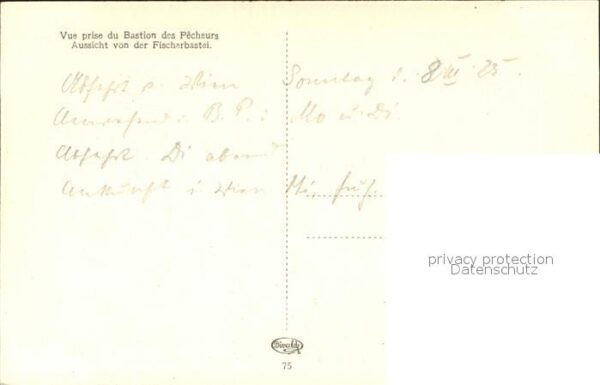 Vue prise du Bastion des Pêcheurs
Aussicht von der Fischerbastei.
Abfahrt v. Wien Sonntag 1. 8 III 25.
Anwesend i. B. P.: Mo u. Di.
Abfahrt Di abend
Ankunft i Wien Mi, früh.
privacy protection
Datenschutz
Divald
75